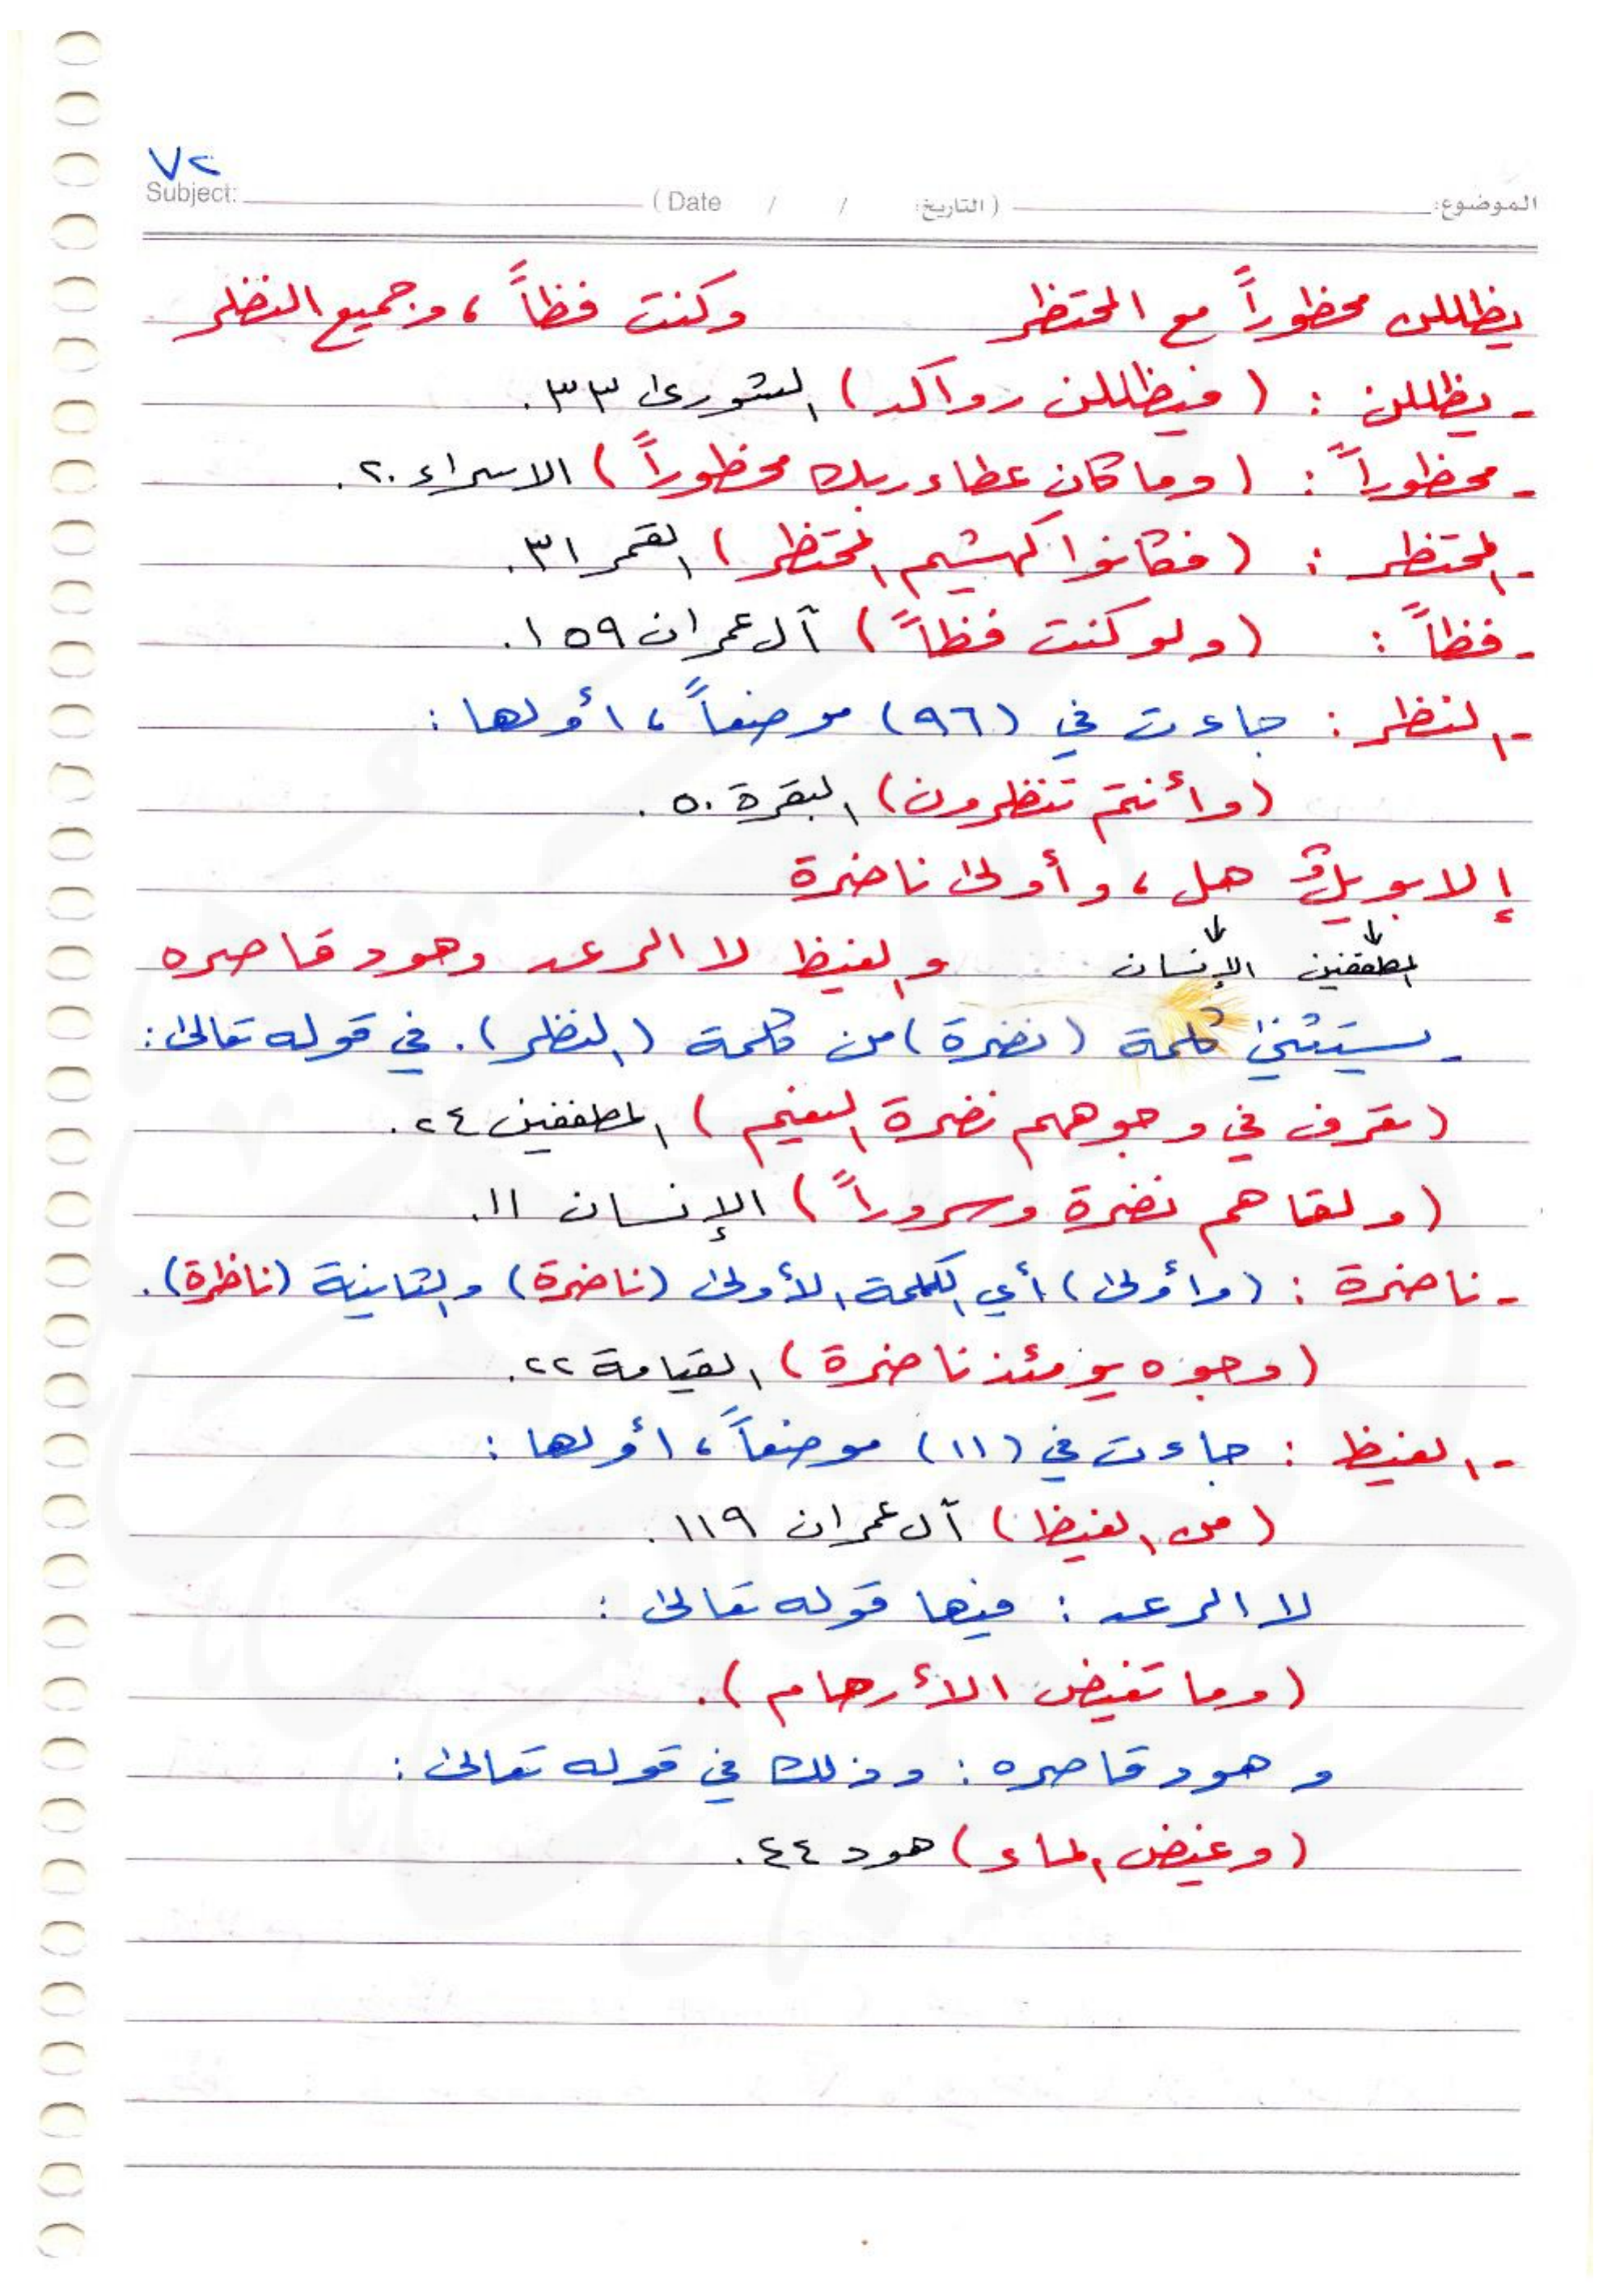 ٧٢
Subject: ( Date / / التاريخ ) الموضوع:
يظللن محظوراً مع المحتظر وكنت فظاً ، وجميع النظر
- يظللن : ( فيظللن رواكد ) الشورى ٣٣.
- محظوراً : ( وما كان عطاء ربك محظوراً ) الاسراء ٢٠.
- المحتظر : ( فكانوا كهشيم المحتظر ) القمر ٣١.
- فظاً : ( ولو كنت فظاً ) آل عمران ١٥٩.
- النظر : جاءت في (٩٦) موضعاً ، أولها :
( وأنتم تنظرون ) البقرة ٥٠.
إلا بويلٌ هل ، وأولى ناضرة
↓ ↓
المطففين الإنسان والغيظ لا الرعد وهود قاصره
- يستثنى كلمة ( نضرة ) من كلمة ( النظر ) . في قوله تعالى :
( تعرف في وجوههم نضرة النعيم ) المطففين ٢٤.
( ولقاهم نضرة وسروراً ) الإنسان ١١.
- ناضرة : ( وأولى ) أي الكلمة الأولى ( ناضرة ) والثانية ( ناظرة ) .
( وجوه يومئذ ناضرة ) القيامة ٢٢.
- الغيظ : جاءت في (١١) موضعاً ، أولها :
( من الغيظ ) آل عمران ١١٩.
لا الرعد : فيها قوله تعالى :
( وما تغيض الأرحام ) .
وهود قاصره : وذلك في قوله تعالى :
( وغيض الماء ) هود ٤٤.